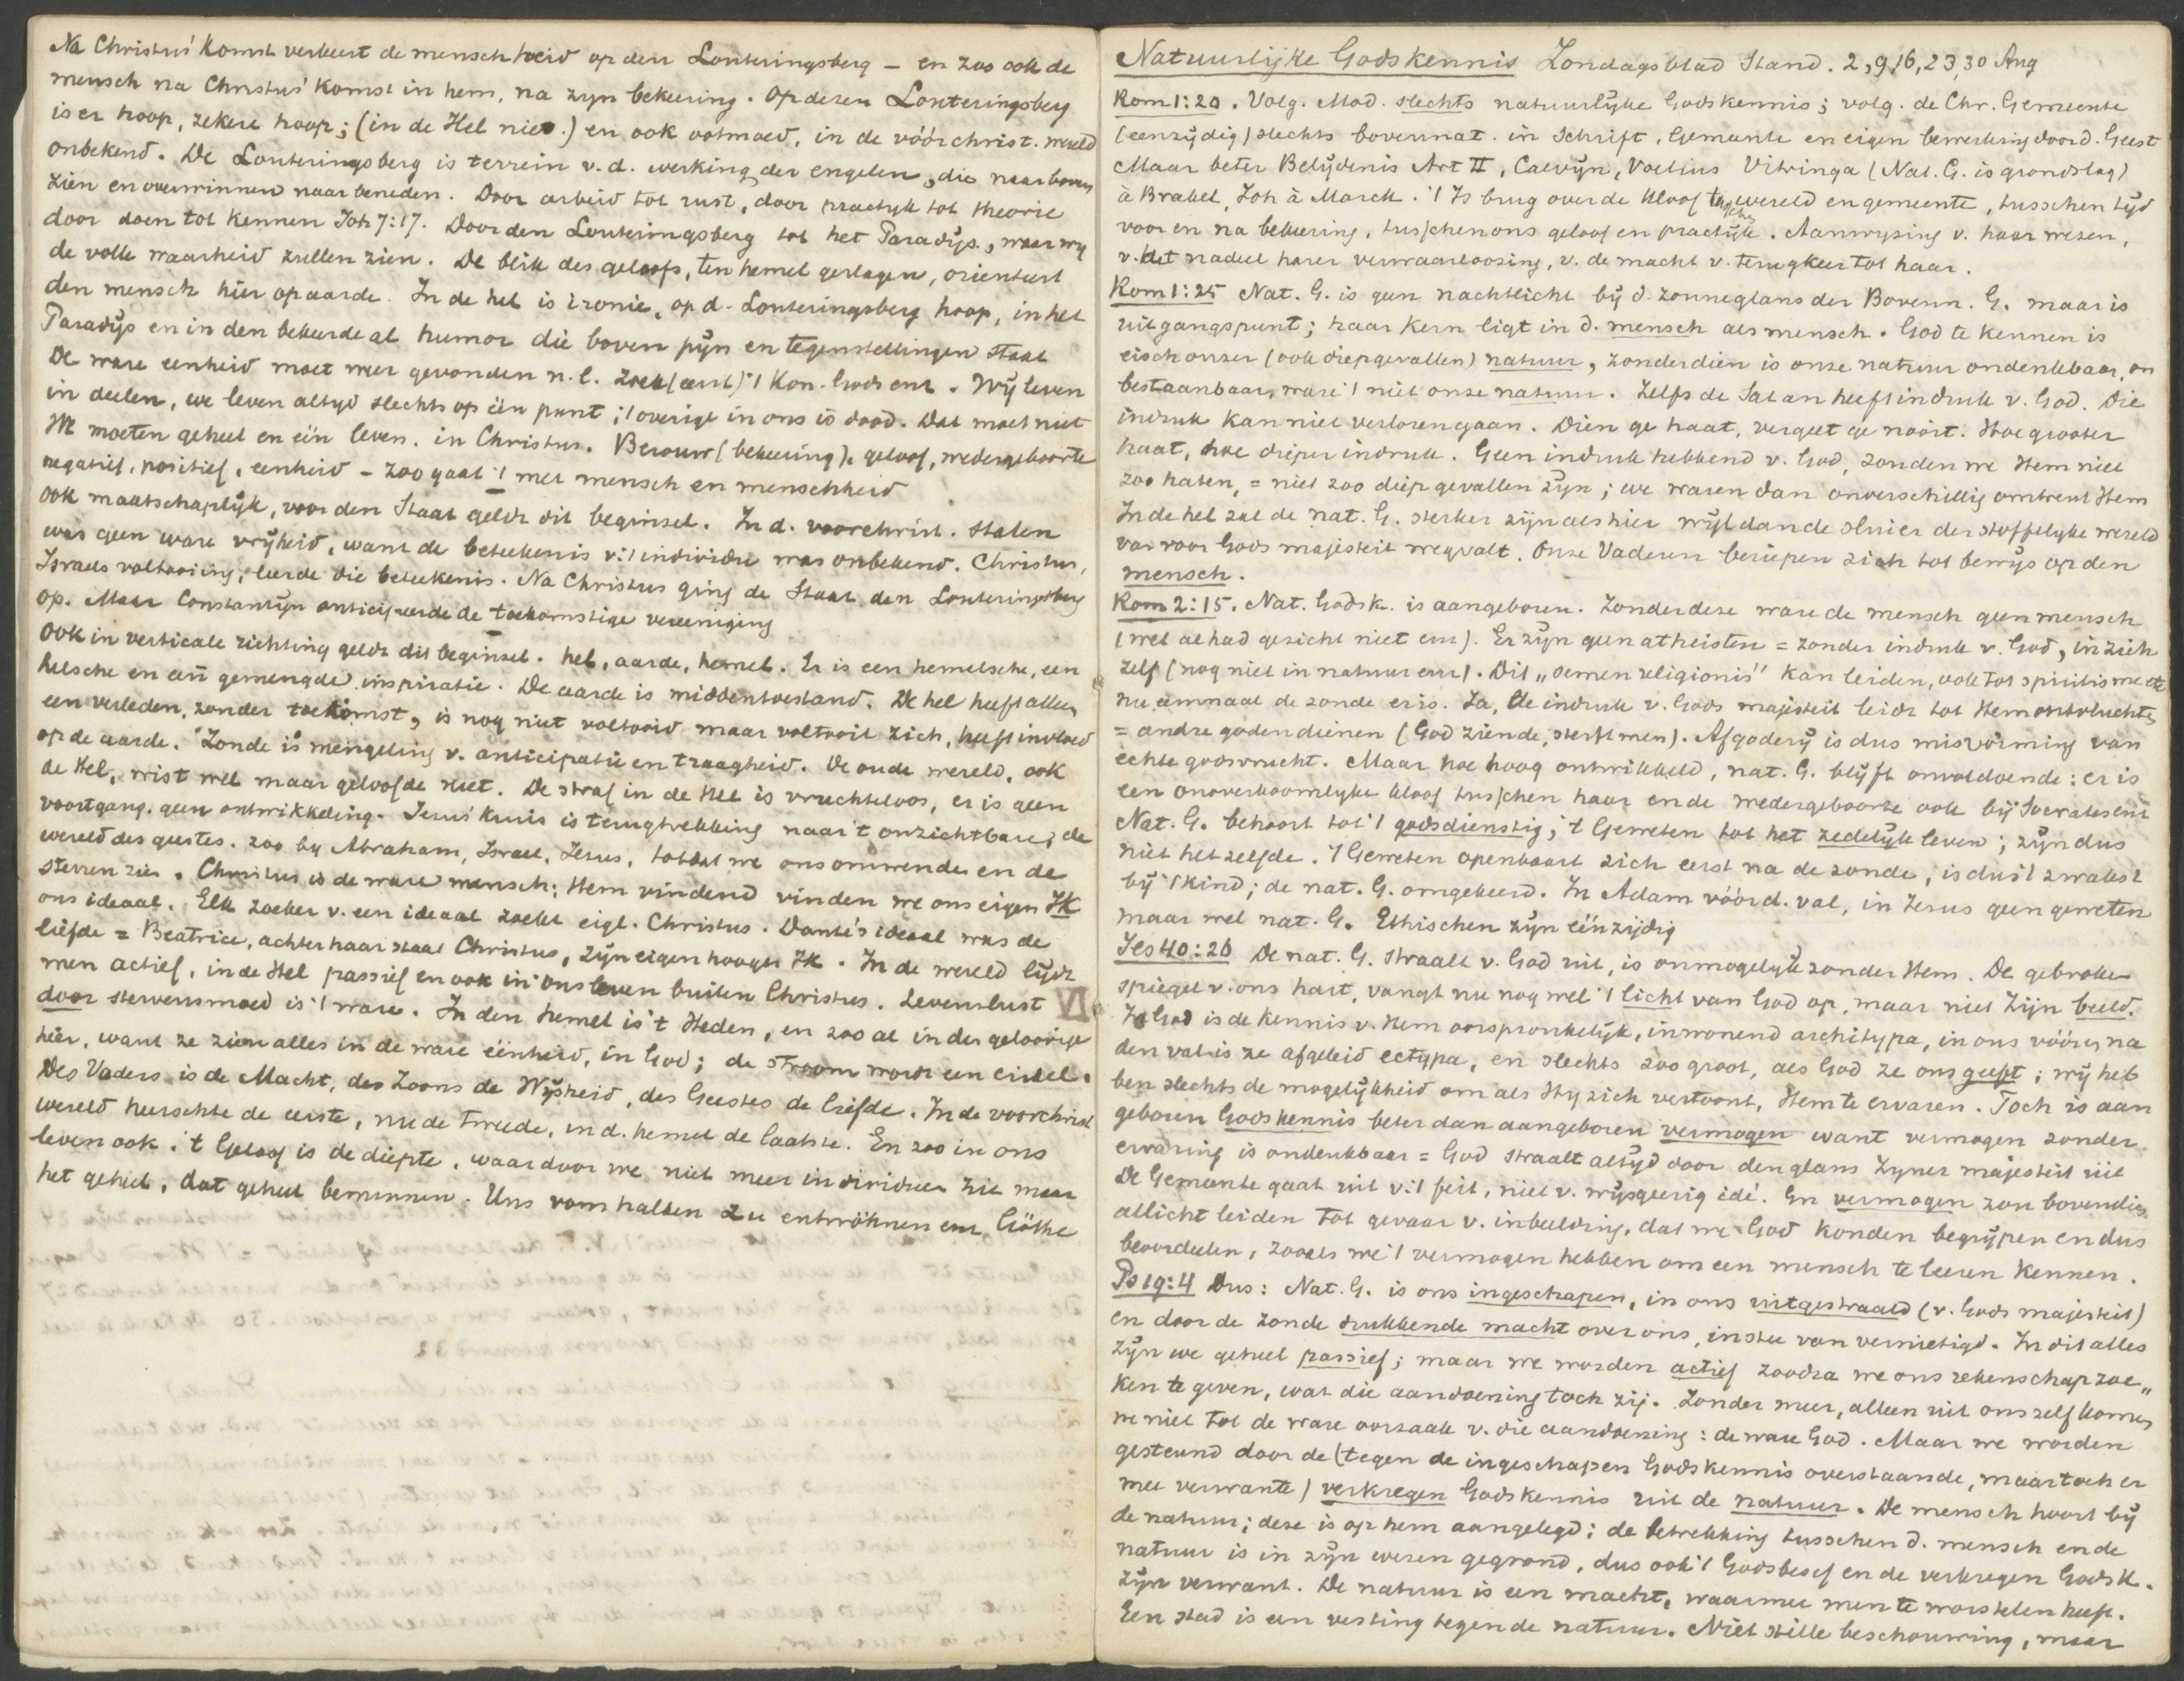 Na Christus' komst verkeert de menschheid op den Louteringsberg – en zoo ook de
mensch na Christus' komst in hem, na zyn bekeering. Op dezen Louteringsberg
is er hoop, zekere hoop; (in de Hel niet.) en ook ootmoed, in de vóórchrist. wereld
onbekend. De Louteringsberg is terrein v.d. werking der engelen, die naar boven
zien en overwinnen naar beneden. Door arbeid tot rust, door practyk tot theorie
door doen tot kennen Joh 7:17. Door den Louteringsberg tot het Paradijs, waar wy
de volle waarheid zullen zien. De blik des geloofs, ten hemel geslagen, orienteert
den mensch hier op aarde. In de hel is ironie, op d. Louteringsberg hoop, in het
Paradijs en in den bekeerde al humor die boven pijn en tegenstellingen staat
De ware eenheid moet weer gevonden n.l. Zoek (eerst) 't Kon. Gods enz. Wij leven
in deelen, we leven altyd slechts op één punt; 't overige in ons is dood. Dat moet niet
We moeten geheel en één leven. in Christus. Berouw (bekeering), geloof, wedergeboorte
negatief, positief, eenheid – zoo gaat 't met mensch en menschheid
ook maatschaplijk, voor den Staat geldt dit beginsel. In d. voorchrist. staten
was geen ware vrijheid, want de beteekenis v. 't individu was onbekend. Christus,
Israels voltooiing, leerde die beteekenis. Na Christus ging de Staat den Louteringsberg
op. Maar Constantyn anticipeerde de toekomstige vereeniging
Ook in verticale richting geldt dit beginsel. hel, aarde, hemel. Er is een hemelsche, een
helsche en een gemengde inspiratie. De aarde is middentoestand. De hel heeft alleen
een verleden, zonder toekomst, is nog niet voltooid maar voltooit zich, heeft invloed
op de aarde. Zonde is mengeling v. anticipatie en traagheid. De oude wereld, ook
de Hel, wist wel maar geloofde niet. De straf in de Hel is vruchteloos, er is geen
voortgang, geen ontwikkeling. Jesus' kruis is terugtrekking naar 't onzichtbare, de
wereld des geestes. zoo by Abraham, Israel, Jesus, totdat we ons omwenden en de
sterren zien. Christus is de ware mensch: Hem vindend vinden we ons eigen Ik
ons ideaal. Elk zoeker v. een ideaal zoekt eigl. Christus. Dante's ideaal was de
liefde = Beatrice, achter haar staat Christus, zijn eigen hooger Ik. In de wereld lijdt
men actief, in de Hel passief en ook in ons leven buiten Christus. Levenslust
door stervensmoed is 't ware. In den hemel is 't Heden, en zoo al in den geloovige
hier, want ze zien alles in de ware éénheid, in God; de stroom wordt een cirkel.
Des Vaders is de Macht, des Zoons de Wijsheid, des Geestes de liefde. In de voorchrist
wereld heerschte de eerste, nu de tweede, in d. hemel de laatste. En zoo in ons
leven ook. 't Geloof is de diepte, waardoor we niet meer individueen zien maar
het geheel, dat geheel beminnen. Uns vom halben zu entwöhnen enz. Göthe
VI
Natuurlijke Godskennis Zondagsblad Stand. 2, 9, 16, 23, 30 Aug
Rom 1:20. Volg. Mod. slechts natuurlijke Godskennis; volg. de Chr. Gemeente
(eenzijdig) slechts bovennat. in Schrift, Gemeente en eigen bewerking door d. Geest
Maar beter Belijdenis Art II, Calvijn, Voetius Vitringa (Nat. G. is grondslag)
à Brakel, Joh à Marck. 't Is brug over de kloof tusschen wereld en gemeente, tusschen tijd
voor en na bekeering, tusschen ons geloof en practijk. Aanwyzing v. haar wezen,
v. het nadeel harer verwaarloozing, v. de macht v. terugkeer tot haar.
Rom 1:25 Nat. G. is geen nachtlicht bij d. zonneglans der Bovenn. G. maar is
uitgangspunt; haar kern ligt in d. mensch als mensch. God te kennen is
eisch onzer (ook diepgevallen) natuur, zonder dien is onze natuur ondenkbaar, on
bestaanbaar, ware 't niet onze natuur. Zelfs de Satan heeft indruk v. God. Die
indruk kan niet verloren gaan. Dien ge haat, vergeet ge nooit. Hoe grooter
haat, hoe dieper indruk. Geen indruk hebbend v. God, zouden we Hem niet
zoo haten, = niet zoo diep gevallen zijn; we waren dan onverschillig omtrent Hem
In de hel zal de nat. G. sterker zijn als hier wijl dan de sluier der stoffelyke wereld
van voor Gods majesteit wegvalt. Onze Vaderen beriepen zich tot bewijs op den
mensch.
Rom 2:15. Nat. Godsk. is aangeboren. Zonder deze ware de mensch geen mensch
(wel al had gezicht niet enz). Er zijn geen atheisten = zonder indruk v. God, in zich
zelf (nog niet in natuur enz). Dit „semen religionis" kan leiden, ook tot spiritisme etc
nu eenmaal de zonde er is. Ja, de indruk v. Gods majesteit leidt tot Hem ontvluchten
= andre goden dienen (God ziende, sterft men). Afgoderij is dus misvorming van
echte godsvrucht. Maar hoe hoog ontwikkeld, nat. G. blijft onvoldoende: er is
een onoverkoomlyke kloof tusschen haar en de wedergeboorte ook bij Socrates enz
Nat. G. behoort tot 't godsdienstig, 't Geweten tot het zedelijk leven; zijn dus
niet hetzelfde. 't Geweten openbaart zich eerst na de zonde, is dus 't zwakst
bij 't kind; de nat. G. omgekeerd. In Adam vóór d. val, in Jezus geen geweten
maar wel nat. G. Ethischen zijn éénzijdig
Jes 40:26 De nat. G. straalt v. God uit, is onmogelyk zonder Hem. De gebroken
spiegel v. ons hart, vangt nu nog wel 't licht van God op, maar niet Zijn beeld.
In God is de kennis v. Hem oorspronkelijk, inwonend architypa, in ons vóór en na
den val is ze afgeleid ectypa, en slechts zoo groot, als God ze ons geeft; wij heb
ben slechts de mogelijkheid om als Hij zich vertoont, Hem te ervaren. Toch is aan
geboren Godskennis beter dan aangeboren vermogen want vermogen zonder
ervaring is ondenkbaar = God straalt altijd door den glans Zyner majesteit uit
De Gemeente gaat uit v. 't feit, niet v. wijsgeerig idé. En vermogen zou bovendien
allicht leiden tot gevaar v. inbeelding, dat we God konden begrijpen en dus
beoordeelen, zooals we 't vermogen hebben om een mensch te leeren kennen.
Ps 19:4 Dus: Nat. G. is ons ingeschapen, in ons uitgestraald (v. Gods majesteit)
en door de zonde drukkende macht over ons, in stee van vernietigd. In dit alles
zijn we geheel passief; maar we worden actief zoodra we ons rekenschap zoe„
ken te geven, wat die aandoening toch zij. Zonder meer, alleen uit onszelf komen
we niet tot de ware oorzaak v. die aandoening: de ware God. Maar we worden
gesteund door de (tegen de ingeschapen Godskennis overstaande, maar toch er
mee verwante) verkregen Godskennis uit de natuur. De mensch hoort bij
de natuur; deze is op hem aangelegd; de betrekking tusschen d. mensch en de
natuur is in zijn wezen gegrond, dus ook 't Godsbesef en de verkregen Godsk.
zijn verwant. De natuur is een macht, waarmee men te worstelen heeft.
Een stad is een vesting tegen de natuur. Niet stille beschouwing, maar